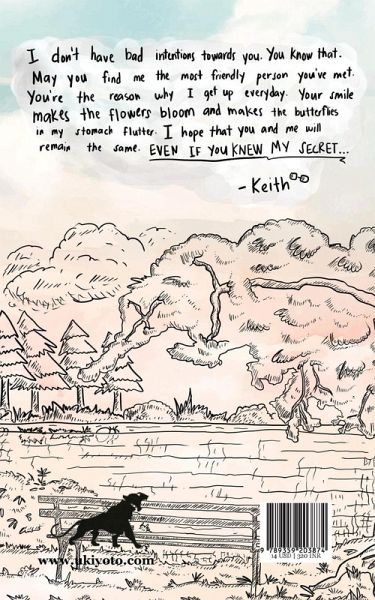 I don't have bad intentions towards you. You know that.
May you find me the most friendly person you've met.
You're the reason why I get up everyday. Your smile
makes the flowers bloom and makes the butterflies
in my stomach flutter. I hope that you and me will
remain the same. EVEN IF YOU KNEW MY SECRET...
- Keith
9 789359 203874
14 USD | 320 INR
www.ukiyoto.com